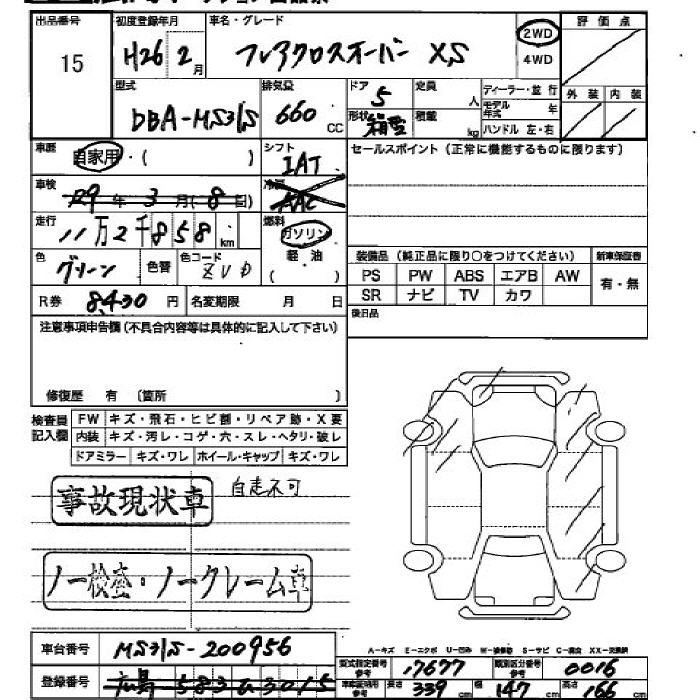 出品番号 初度登録年月 車名・グレード 評価点
15 H26 2月 フレアクロスオーバー XS 2WD
4WD
型式 排気量 ドア 定員 ディーラー・並行 外装 内装
DBA-MS31S 660 CC 5 人 モデル年式 年
形状 箱型 積載 kg ハンドル 左・右
車歴 自家用・( ) シフト IAT セールスポイント(正常に機能するものに限ります)
車検 29年 3月(8日) 冷房 AAC
走行 11万2千858km 燃料 ガソリン
軽油
( )
色 グリーン 色替 色コード ZVD
装備品(純正品に限り〇をつけてください) 新車保証書
PS PW ABS エアB AW 有・無
SR ナビ TV カワ
R券 8430円 名変期限 月 日 後日品
注意事項申告欄(不具合内容等は具体的に記入して下さい)
修復歴 有 〔箇所 〕
検査員記入欄 FW キズ・飛石・ヒビ割・リペア跡・X要
内装 キズ・汚レ・コゲ・穴・スレ・ヘタリ・破レ
ドアミラー キズ・ワレ ホイール・キャップ キズ・ワレ
事故現状車 自走不可
ノー検査・ノークレーム車
車台番号 MS31S-200956
登録番号 広島 583 3015
A-キズ E-エクボ U-凹み W-補修跡 S-サビ C-腐食 XX-交換済
型式指定番号 17677 類別区分番号 0016
長さ 339 cm 幅 147 cm 高さ 166 cm